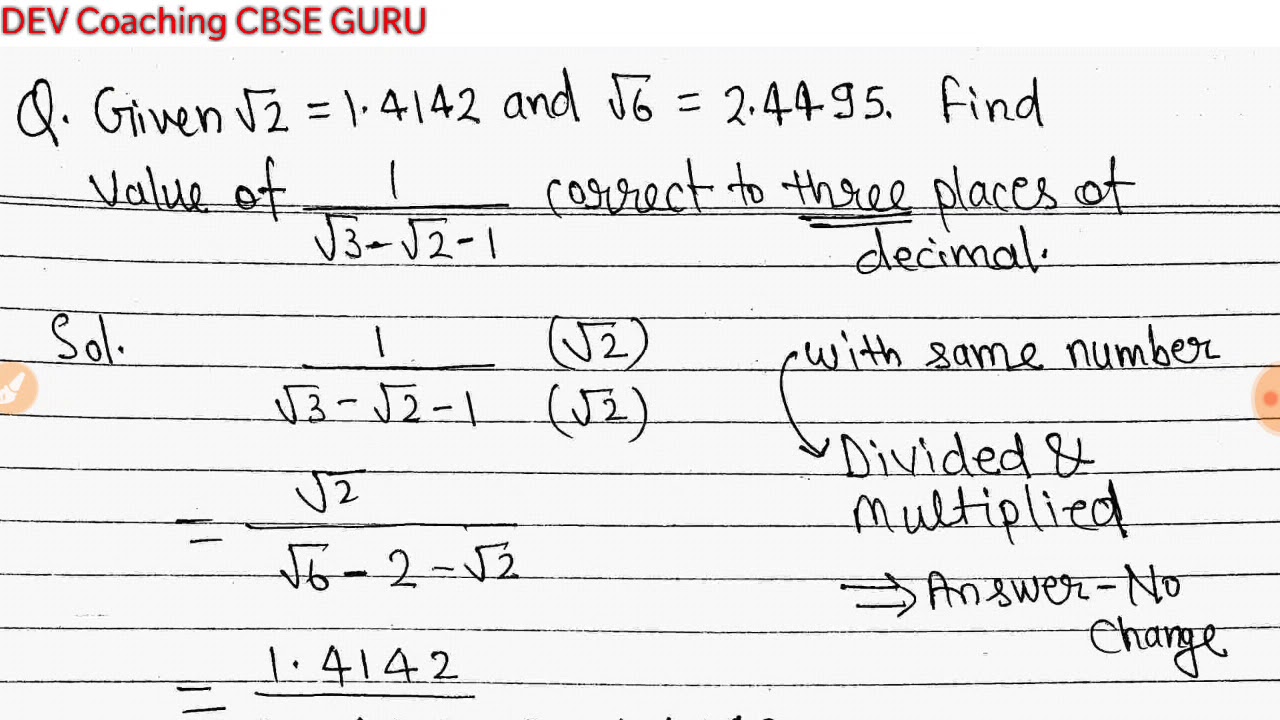 DEV Coaching CBSE GURU
Q. Given √2 = 1.4142 and √6 = 2.4495. Find
Value of 1/(√3-√2-1) correct to three places of
decimal.
Sol. 1 (√2)
√3-√2-1 (√2)
with same number
Divided &
Multiplied
⇒ Answer-No
Change
= √2
√6-2-√2
= 1.4142